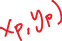 xp, yp)